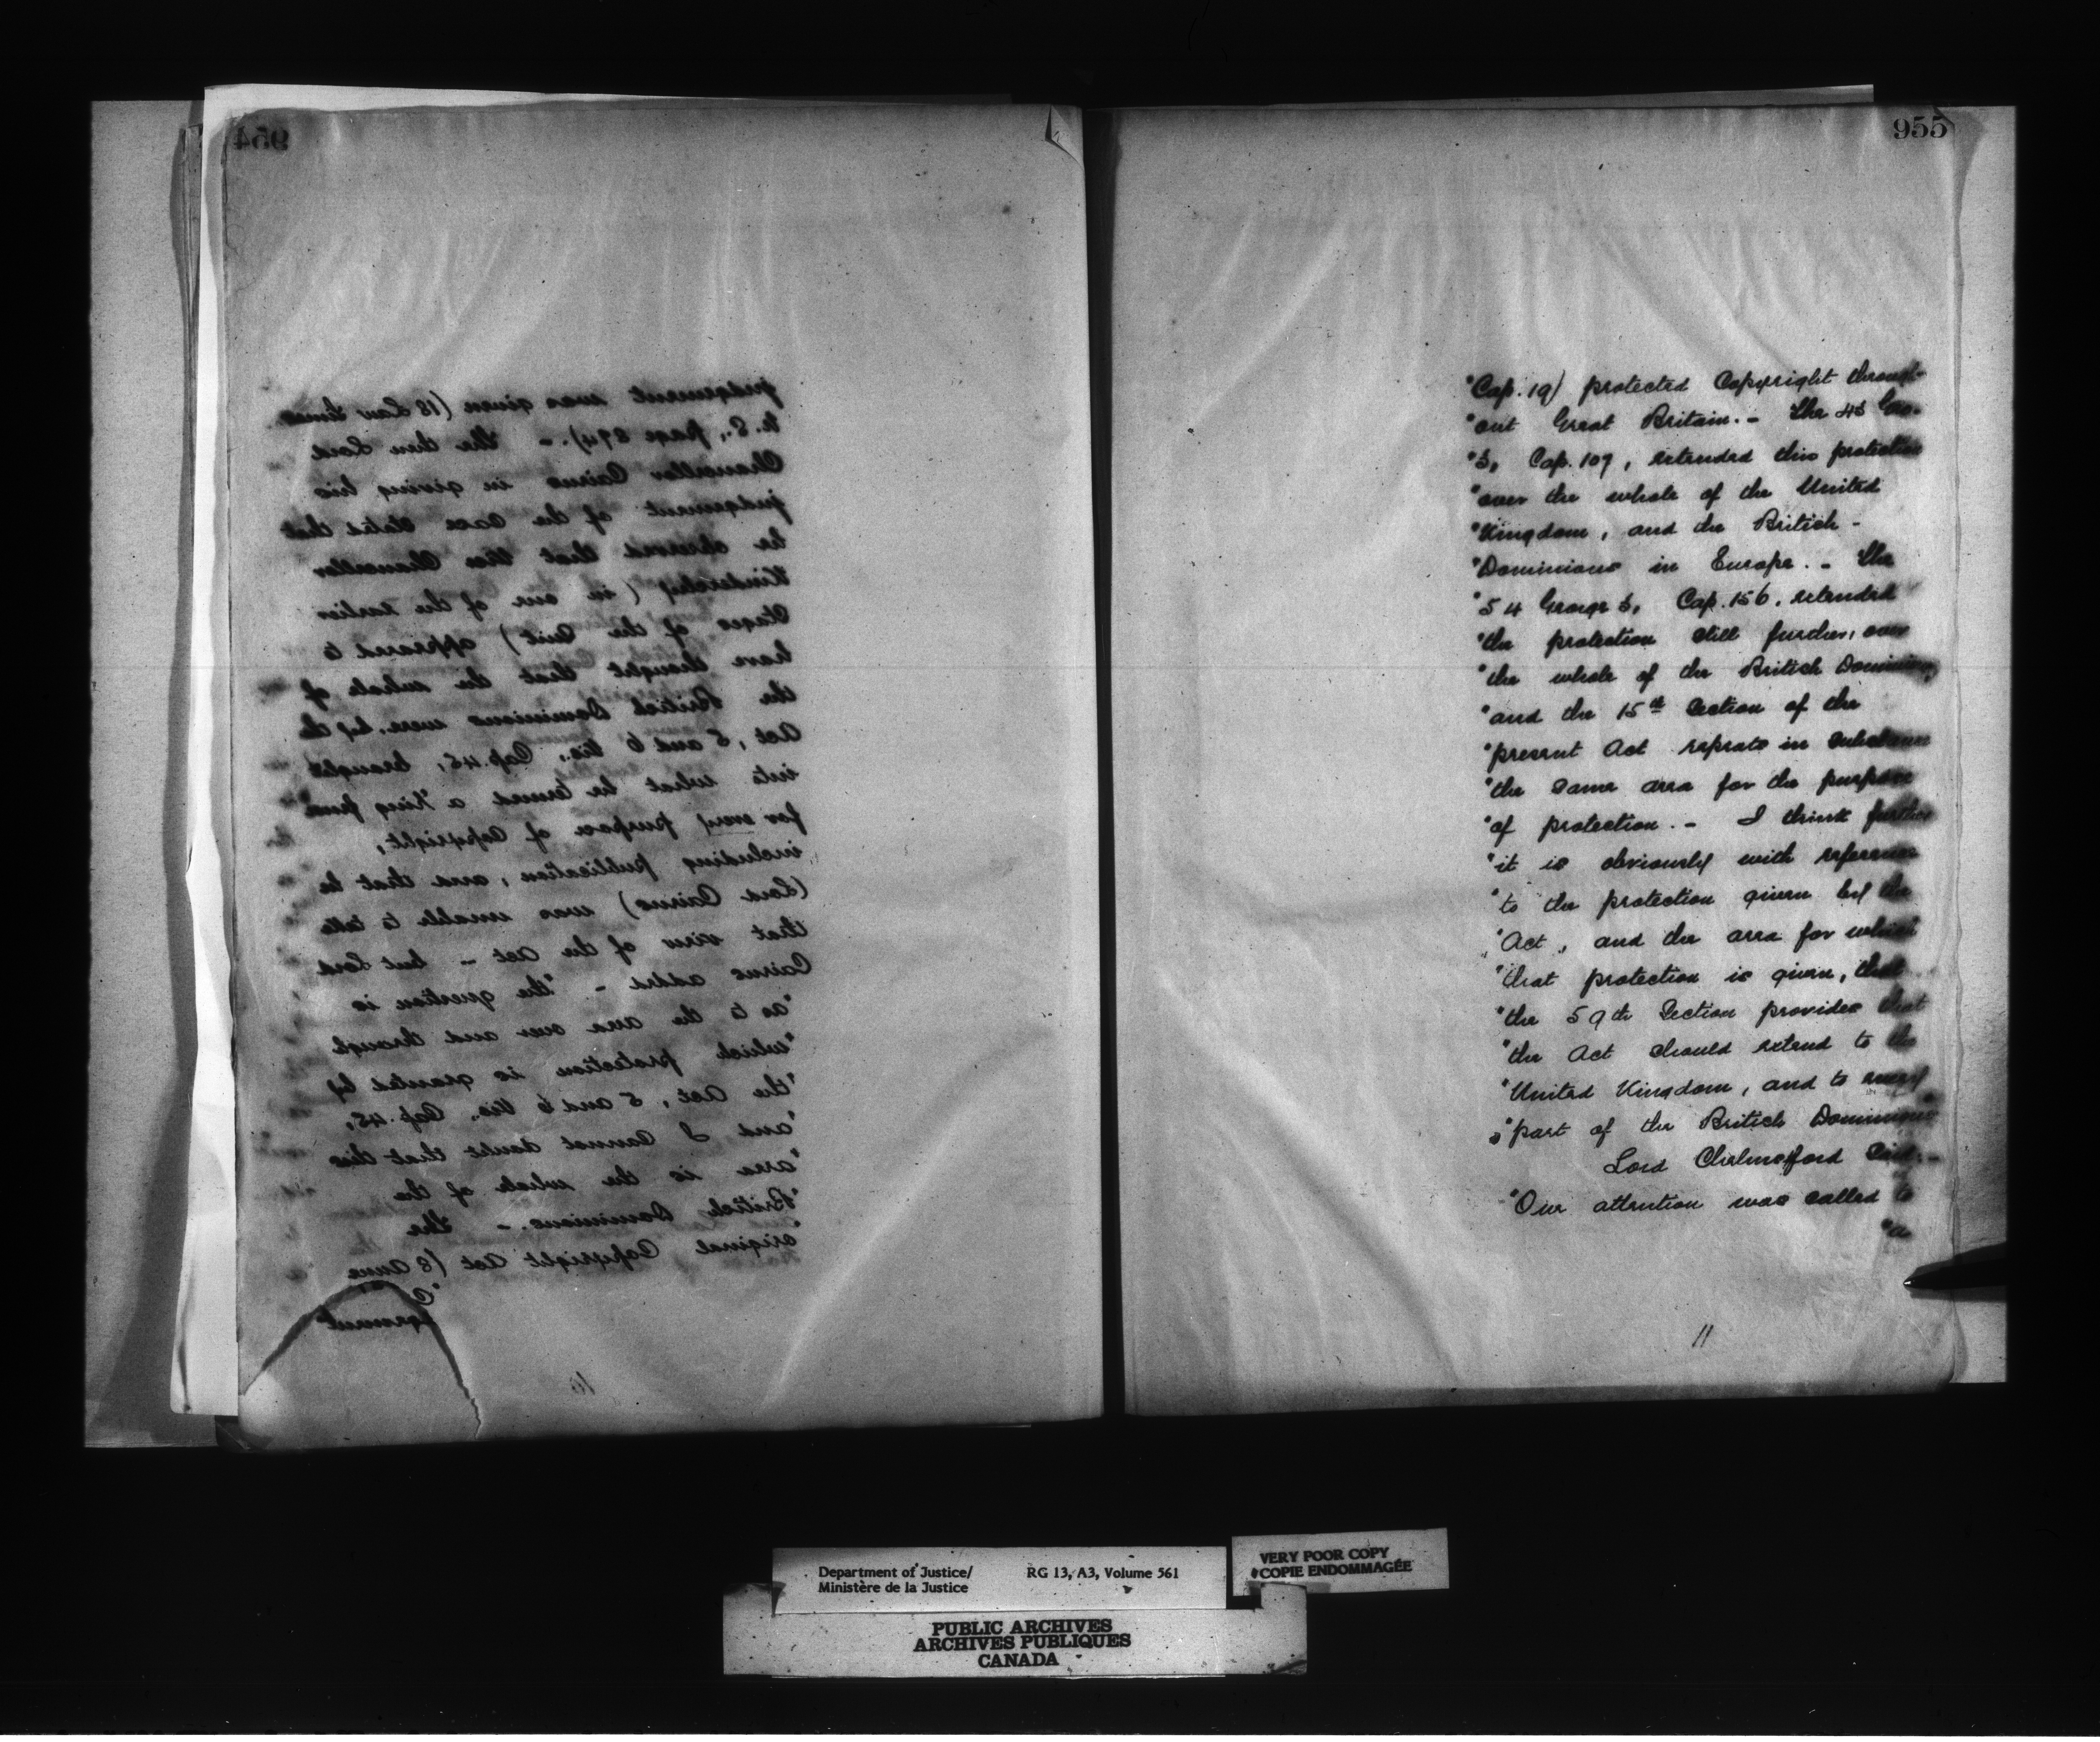 954
judgement was given (18 Law Times
N. S., page 874). - The then Lord
Chancellor Cairns in giving his
judgement of the case stated that
he observed that Vice Chancellor
Kindersley (in one of the earlier
stages of the Suit) appeared to
have thought that the whole of
the British Dominions were by the
Act, 5 and 6 Vic., Cap. 45, brought
into what he termed a "King
for every purpose of Copyright,
including publication, and that he
(Lord Cairns) was unable to take
that view of the Act - but Lord
Cairns added - "the question is
"as to the area over and through
"which protection is granted by
"the Act, 5 and 6 Vic. Cap. 45,
"and I cannot doubt that this
"area is the whole of the
"British Dominions. - The
"original Copyright Act (8 Anne
"C
10
955
"Cap. 19) protected Copyright through-
"out Great Britain. - The 43 Geo.
"3, Cap. 107, extended this protection
"over the whole of the United
"Kingdom, and the British -
"Dominions in Europe. - The
"54 George 3, Cap. 156, extended
"the protection still further, over
"the whole of the British Dominions,
"and the 15th Section of the
"present Act repeats in substance
"the same area for the purpose
"of protection. - I think further
"it is obviously with reference
"to the protection given by the
"Act, and the area for which
"that protection is given, that
"the 59th Section provides that
"the Act should extend to the
"United Kingdom, and to every
"part of the British Dominions"
Lord Chelmsford Said: -
"Our attention was called to
"a
11
Department of Justice/ RG 13, A3, Volume 561
Ministère de la Justice
VERY POOR COPY
COPIE ENDOMMAGÉE
PUBLIC ARCHIVES
ARCHIVES PUBLIQUES
CANADA